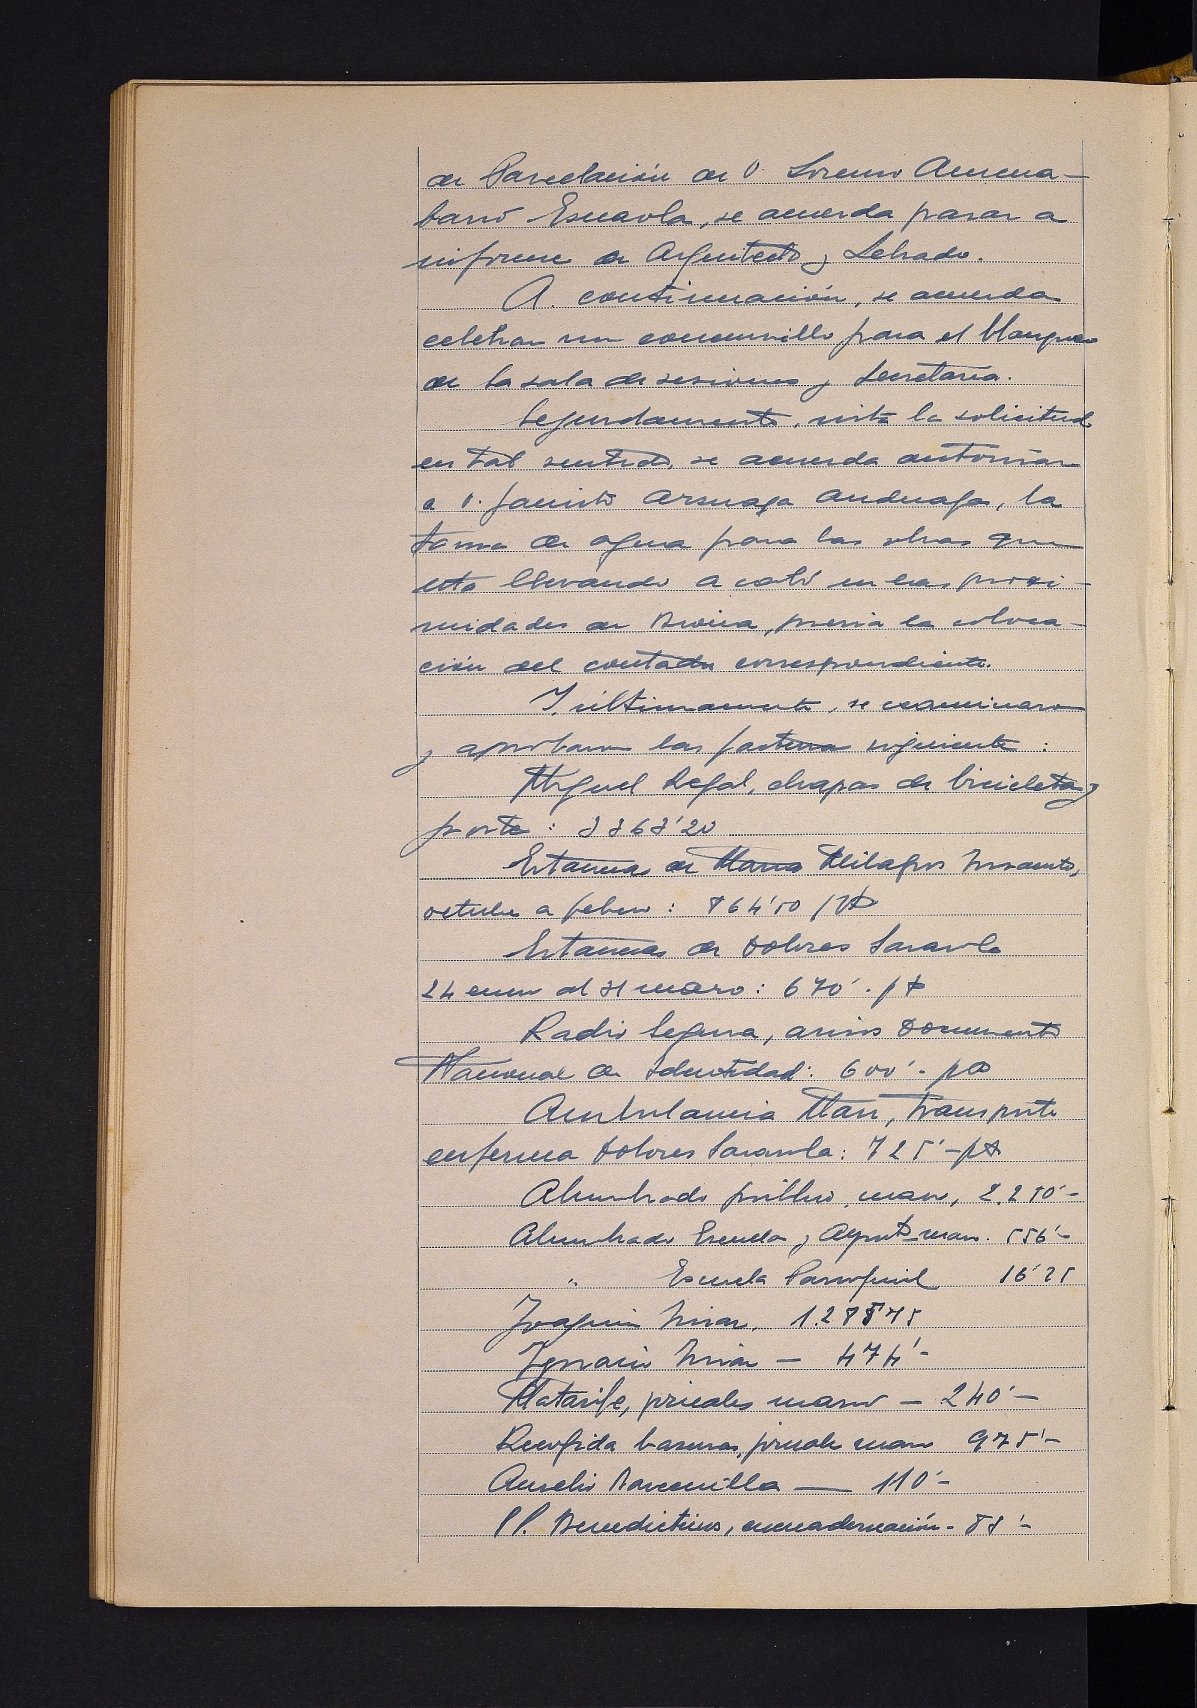 de Parcelación de D. Lorenzo Amena-
barro Escaola, se acuerda pasar a
informe de Arquitecto y Letrado.
A continuación, se acuerda
celebrar un concursillo para el blanqueo
de la sala de sesiones y Secretaría.
Segundamente, vista la solicitud
en tal sentido, se acuerda autorizar
a D. Jacinto Arsuaga Anduaga, la
toma de agua para las obras que
esta llevando a cabo en las proxi-
midades de , previa la coloca-
ción del contador correspondiente.
Y últimamente, se examinaron
y aprobaron las facturas siguientes:
Miguel Regal, chapas de bicicletas y
porte: 3363'20
Estancias de Milagros
octubre a febrero: 864'50 pts
Estancias de Dolores Sarasola
24 enero al 31 marzo: 670'- pts
Radio Segura, avisos Documento
Nacional de Identidad: 600'- pts
Ambulancia Mari, transporte
enferma Dolores Sarasola: 725'- pts
Alumbrado público, marzo, 2.250'-
Alumbrado Escuela y Ayunt- marzo. 556'-
" Escuela Parroquial 16'25
Joaquin . 1.285'75
Ignacio — 474'-
Matarife, jornales marzo — 240'-
Recogida basuras, jornales marzo 975'-
Aurelio — 110'-
PP. Benedictinos, encuadernación - 83'-